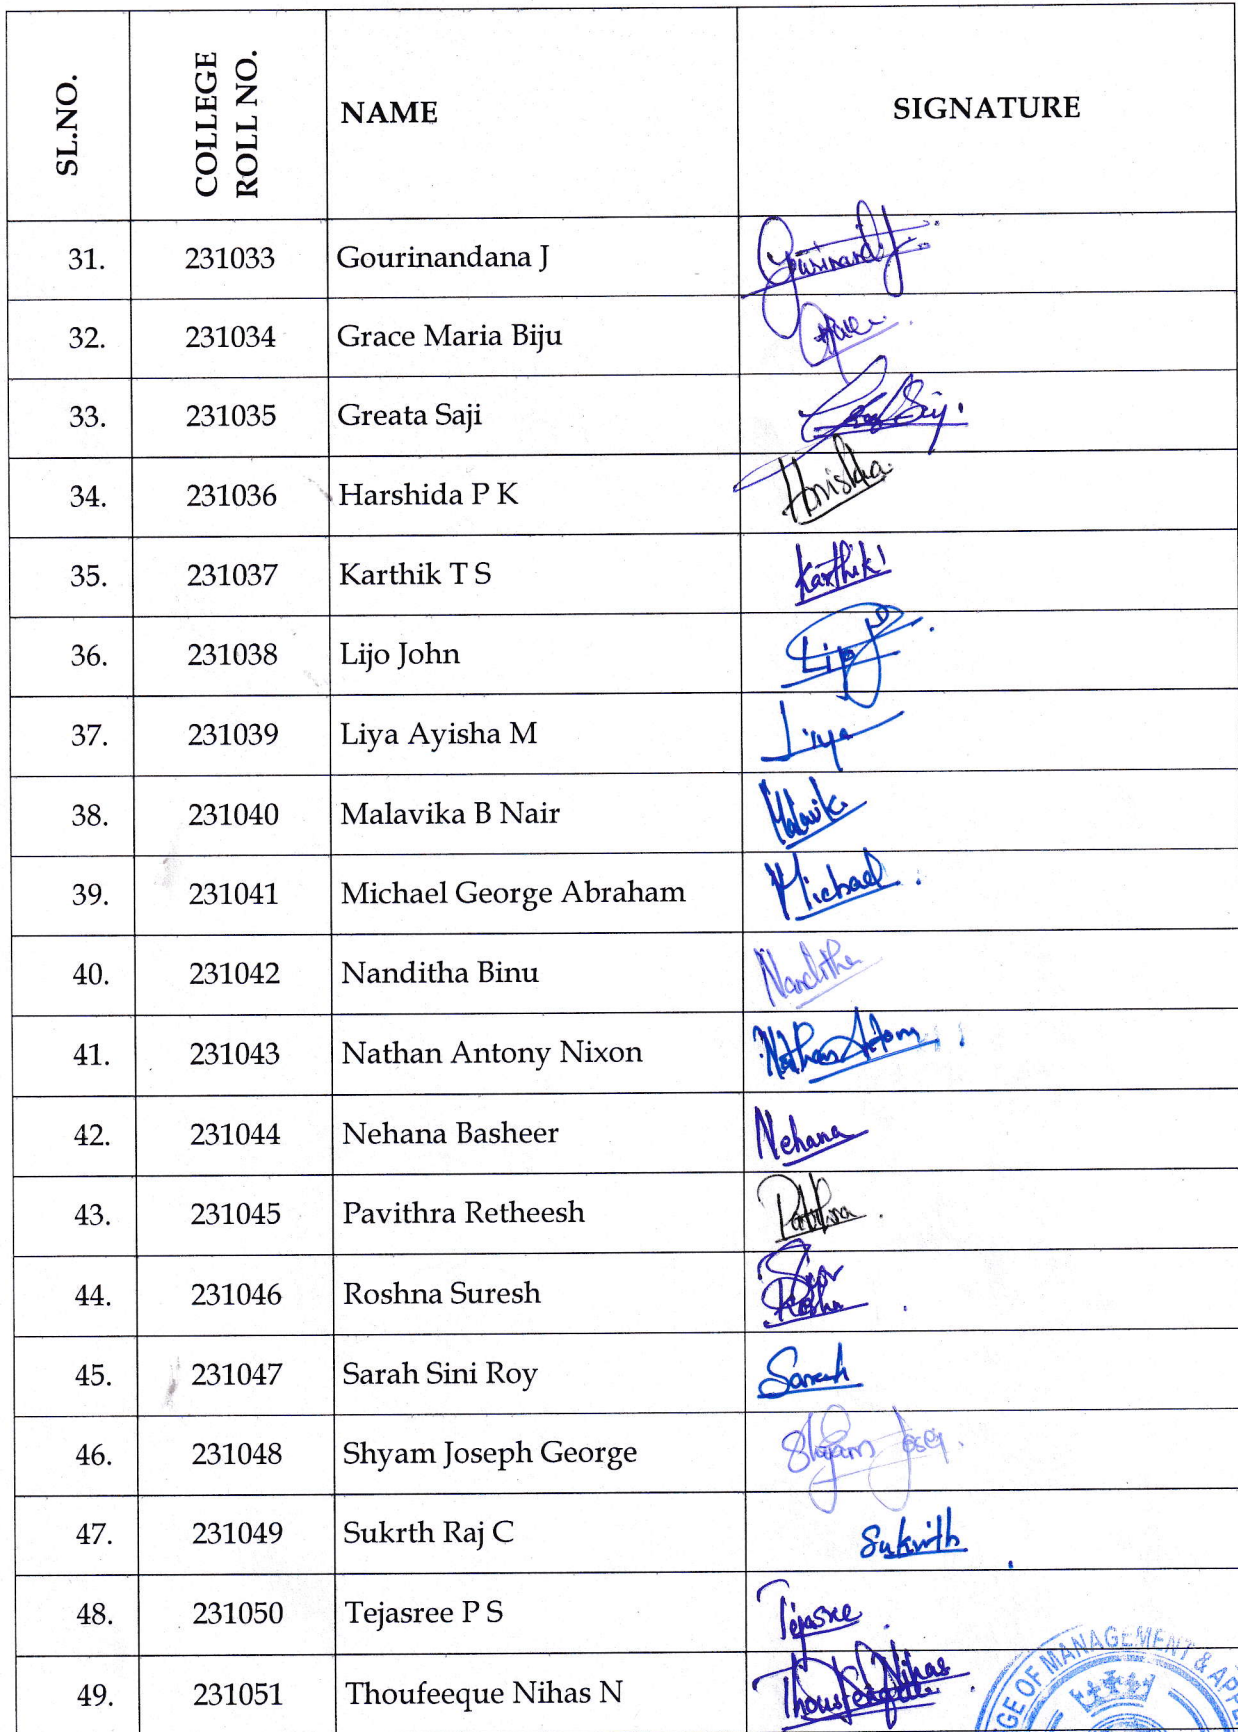 SL.NO. COLLEGE ROLL NO. NAME SIGNATURE
31. 231033 Gourinandana J
32. 231034 Grace Maria Biju
33. 231035 Greata Saji
34. 231036 Harshida P K
35. 231037 Karthik T S Karthik
36. 231038 Lijo John Lijo
37. 231039 Liya Ayisha M Liya
38. 231040 Malavika B Nair Malavika
39. 231041 Michael George Abraham Michael
40. 231042 Nanditha Binu Nanditha
41. 231043 Nathan Antony Nixon Nathan Antony
42. 231044 Nehana Basheer Nehana
43. 231045 Pavithra Retheesh Pavithra
44. 231046 Roshna Suresh
45. 231047 Sarah Sini Roy Sarah
46. 231048 Shyam Joseph George Shyam
47. 231049 Sukrth Raj C Sukrith
48. 231050 Tejasree P S Tejasree
49. 231051 Thoufeeque Nihas N Thoufeeque Nihas
OF MANAGEMENT &